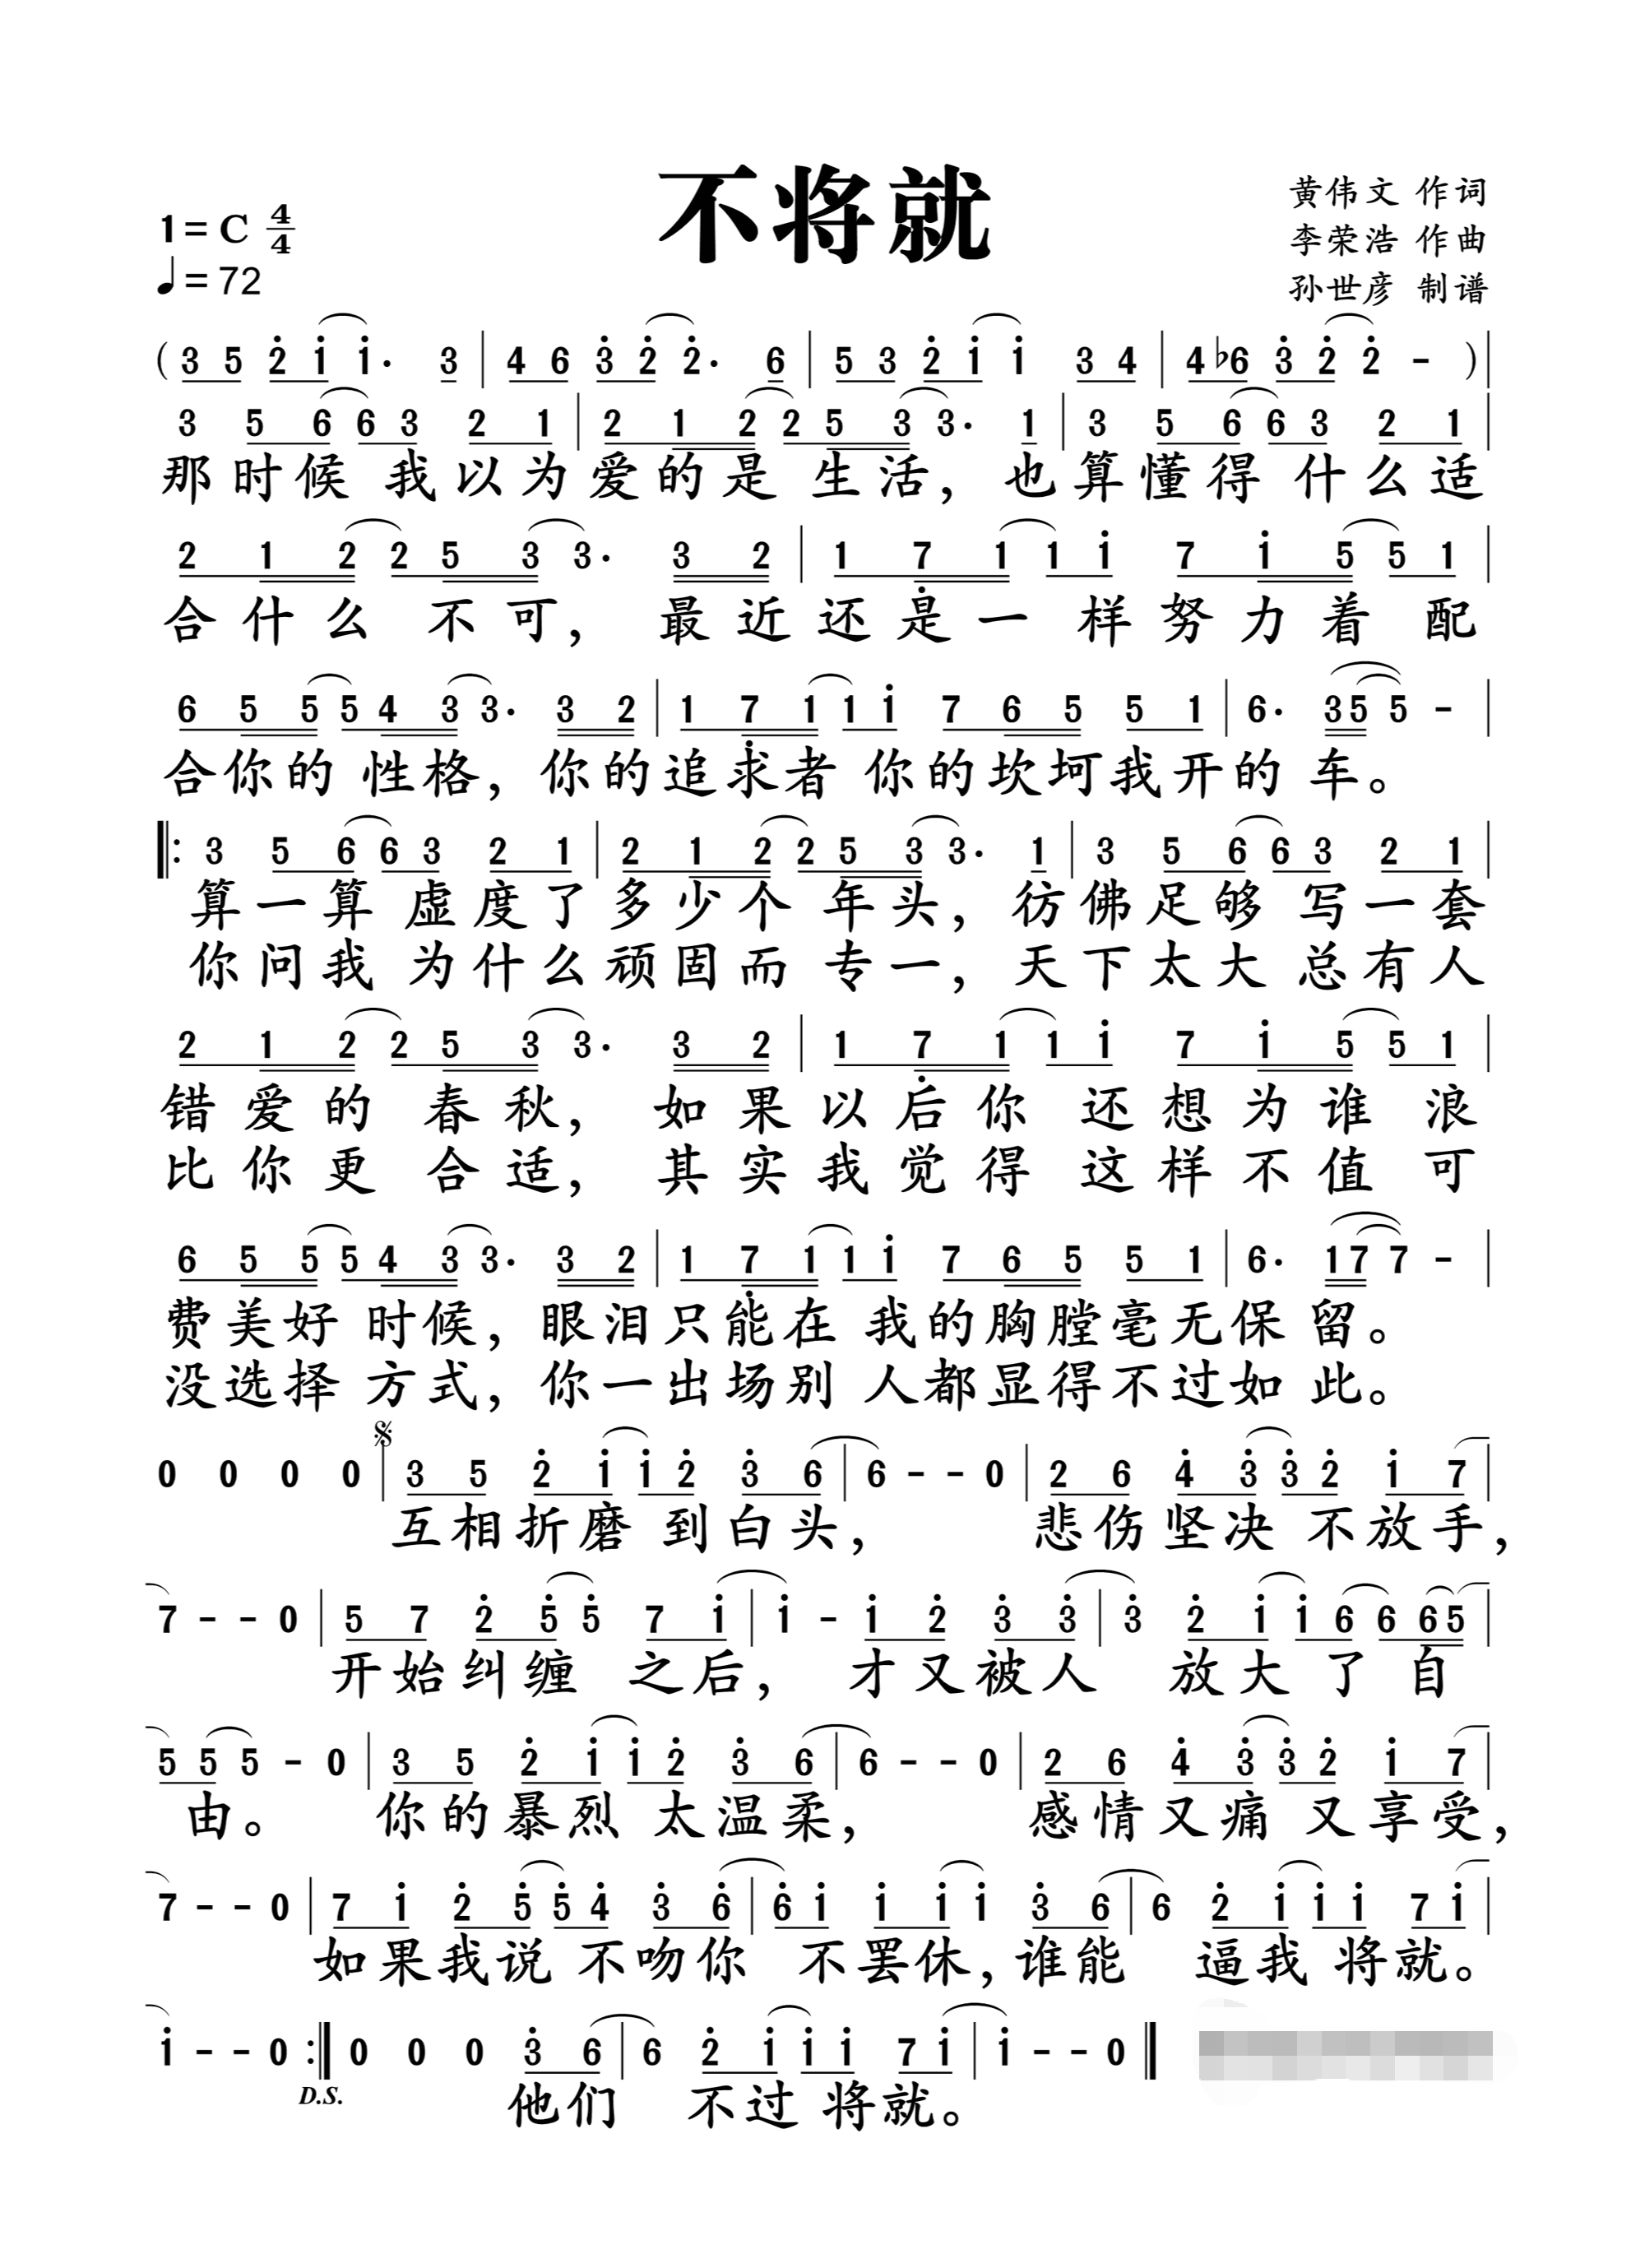 不将就
1=C 4/4
♩=72
黄伟文 作词
李荣浩 作曲
孙世彦 制谱
(3 5 2̇ 1̇ 1̇· 3 | 4 6 3̇ 2̇ 2̇· 6 | 5 3 2̇ 1̇ 1̇ 3 4 | 4 ♭6 3̇ 2̇ 2̇ - )|
3 5 6 6 3 2 1 | 2 1 2 2 5 3 3· 1 | 3 5 6 6 3 2 1 |
那时候 我以为爱的是 生活，也算懂得 什么适
2 1 2 2 5 3 3· 3 2 | 1 7̣ 1 1 1̇ 7 1̇ 5 5 1 |
合什么 不可， 最近还是一 样努力着 配
6 5 5 5 4 3 3· 3 2 | 1 7̣ 1 1 1̇ 7 6 5 5 1 | 6· 3 5 5 - |
合你的 性格，你的追求者 你的坎坷我开的 车。
‖: 3 5 6 6 3 2 1 | 2 1 2 2 5 3 3· 1 | 3 5 6 6 3 2 1 |
算一算 虚度了多少个 年头，彷佛足够 写一套
你问我 为什么顽固而 专一，天下太大 总有人
2 1 2 2 5 3 3· 3 2 | 1 7̣ 1 1 1̇ 7 1̇ 5 5 1 |
错爱的 春秋， 如果以后你 还想为谁 浪
比你更 合适， 其实我觉得 这样不值 可
6 5 5 5 4 3 3· 3 2 | 1 7̣ 1 1 1̇ 7 6 5 5 1 | 6· 1 7 7 - |
费美好 时候，眼泪只能在 我的胸膛毫无保 留。
没选择 方式，你一出场别 人都显得不过如 此。
0 0 0 0 | 𝄋 3 5 2̇ 1̇ 1̇ 2̇ 3̇ 6 | 6 - - 0 | 2 6 4̇ 3̇ 3̇ 2̇ 1̇ 7 |
互相折磨 到白头， 悲伤坚决 不放手，
7 - - 0 | 5 7 2̇ 5̇ 5̇ 7 1̇ | 1̇ - 1̇ 2̇ 3̇ 3̇ | 3̇ 2̇ 1̇ 1̇ 6 6 6 5 |
开始纠缠 之后， 才又被人 放大了自
5 5 5 - 0 | 3 5 2̇ 1̇ 1̇ 2̇ 3̇ 6 | 6 - - 0 | 2 6 4̇ 3̇ 3̇ 2̇ 1̇ 7 |
由。 你的暴烈 太温柔， 感情又痛 又享受，
7 - - 0 | 7 1̇ 2̇ 5̇ 5̇ 4̇ 3̇ 6̇ | 6̇ 1̇ 1̇ 1̇ 1̇ 3̇ 6 | 6 2̇ 1̇ 1̇ 1̇ 7 1̇ |
如果我说 不吻你 不罢休，谁能 逼我 将就。
1̇ - - 0 :‖ 0 0 0 3̇ 6 | 6 2̇ 1̇ 1̇ 1̇ 7 1̇ | 1̇ - - 0 ‖
D.S.
他们 不过 将就。